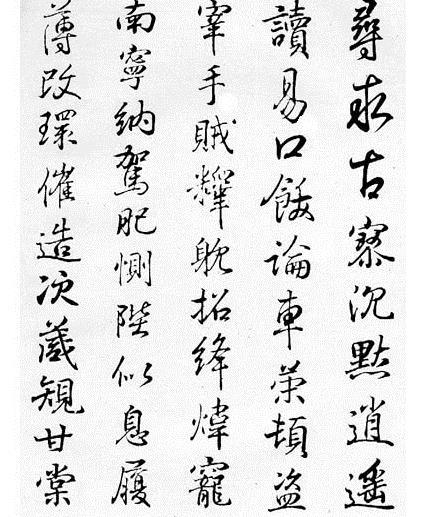 尋求古寮沉默逍遥
讀易口論車榮頓盗
宰手賊躭招絳煒寵
南寧納駕肥惻陛似息履
薄改環催造次葴規甘棠